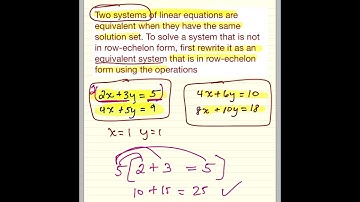 Two systems of linear equations are
equivalent when they have the same
solution set. To solve a system that is not
in row-echelon form, first rewrite it as an
equivalent system that is in row-echelon
form using the operations
2x+3y = 5
4x+5y = 9
4x+6y = 10
8x+10y = 18
x=1 y=1
5[2+3 = 5]
10+15 = 25 ✓